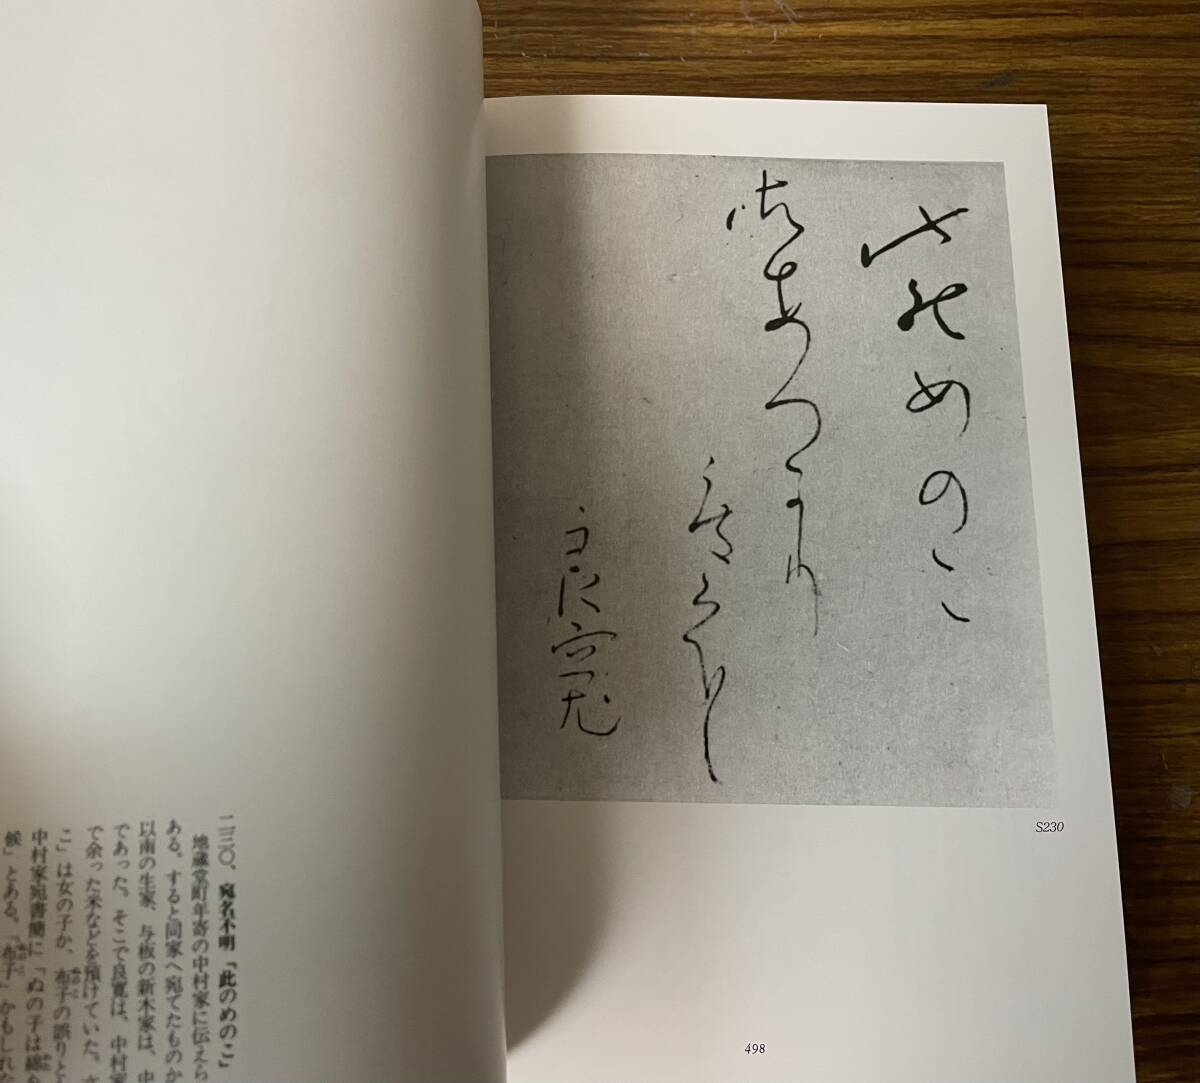 此のめのこ
御あつかり
S230
498
二三〇、宛名不明「此のめのこ」
地蔵堂町年寄の中村家に伝えら
ある。すると同家へ宛てたものか
以南の生家、与板の新木家は、中
であった。そこで良寛は、中村家
で余った米などを預けていた。さ
こ」は女の子か、布子の誤りと
中村家宛書簡に「ぬの子は綿を
候」とある。「布子」かもしれな